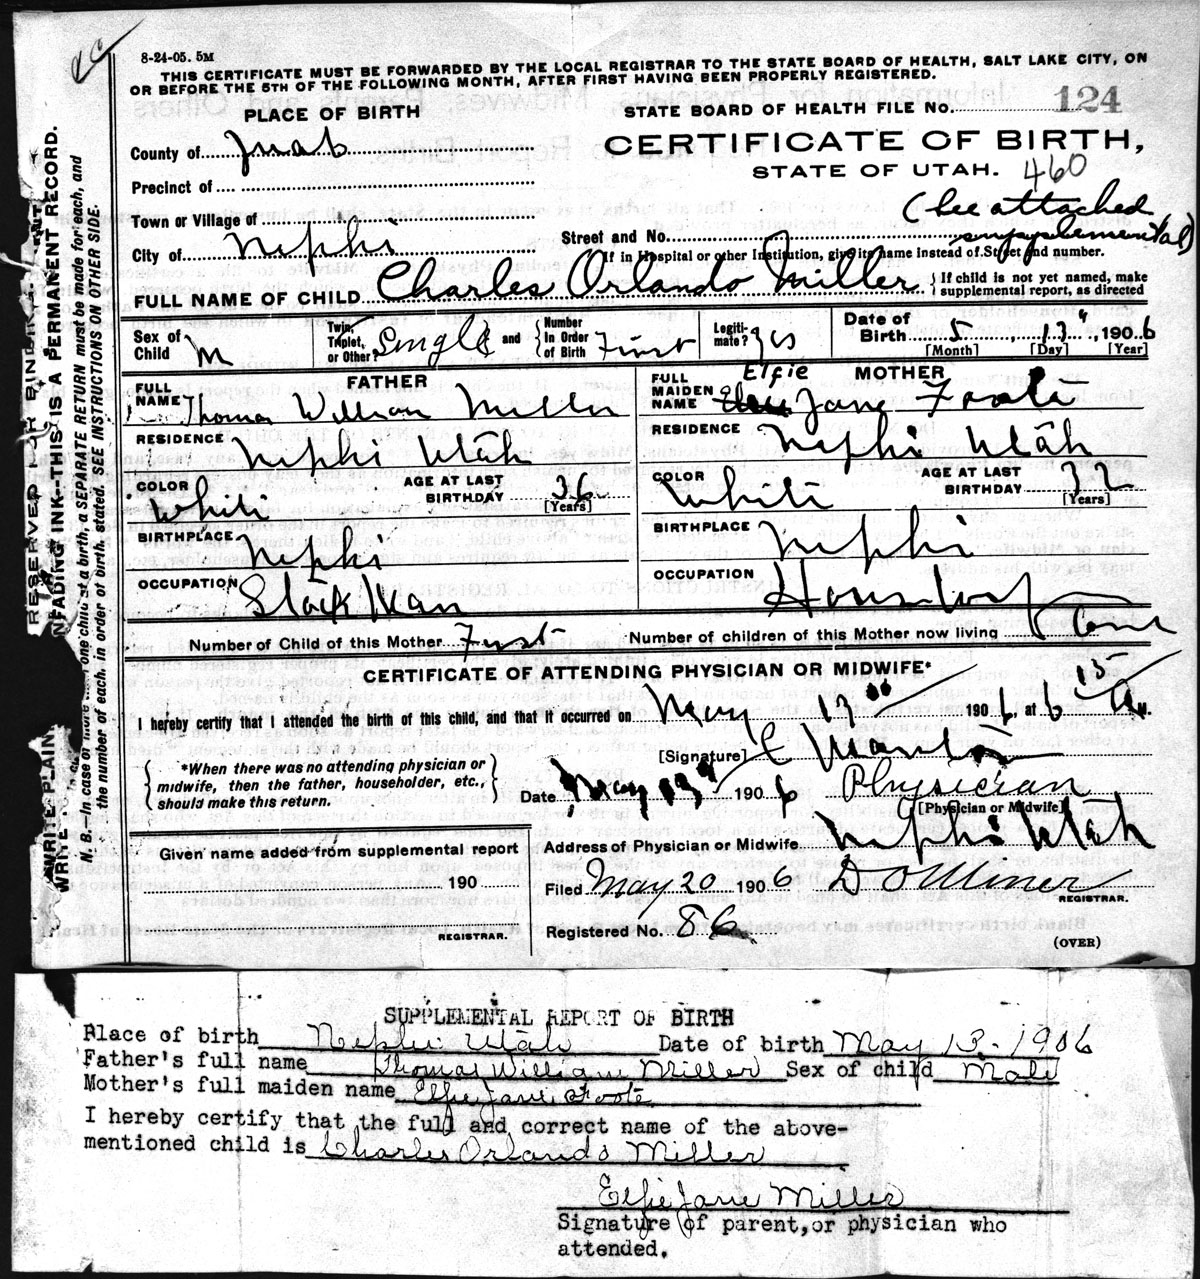 8-24-05. 5M
THIS CERTIFICATE MUST BE FORWARDED BY THE LOCAL REGISTRAR TO THE STATE BOARD OF HEALTH, SALT LAKE CITY, ON
OR BEFORE THE 5TH OF THE FOLLOWING MONTH, AFTER FIRST HAVING BEEN PROPERLY REGISTERED.
PLACE OF BIRTH
STATE BOARD OF HEALTH FILE NO. 124
County of Juab
CERTIFICATE OF BIRTH,
STATE OF UTAH. 460
Precinct of
(See attached
supplemental)
Town or Village of
City of Nephi
Street and No.
If in Hospital or other Institution, give its name instead of Street and number.
FULL NAME OF CHILD Charles Orlando Miller
If child is not yet named, make
supplemental report, as directed
Sex of Child M
Twin, Triplet, or Other? Single and Number In Order of Birth First
Legitimate? Yes
Date of Birth 5 13", 1906
[Month] [Day] [Year]
FATHER
FULL NAME Thomas William Miller
RESIDENCE Nephi Utah
COLOR White
AGE AT LAST BIRTHDAY 36
[Years]
BIRTHPLACE Nephi
OCCUPATION Stock Man
MOTHER
FULL MAIDEN NAME Elfie Jane Foote
RESIDENCE Nephi Utah
COLOR White
AGE AT LAST BIRTHDAY 32
[Years]
BIRTHPLACE Nephi
OCCUPATION Housewife
Number of Child of this Mother First
Number of children of this Mother now living One
CERTIFICATE OF ATTENDING PHYSICIAN OR MIDWIFE*
I hereby certify that I attended the birth of this child, and that it occurred on May 13" 1906, at 6 15 A M.
[Signature]
*When there was no attending physician or
midwife, then the father, householder, etc.,
should make this return.
Date May 13" 1906
Physician
[Physician or Midwife]
Given name added from supplemental report
190
REGISTRAR.
Address of Physician or Midwife Nephi Utah
Filed May 20 1906 D O Miner
REGISTRAR.
Registered No. 86
(OVER)
RESERVED FOR BINDING
WRITE PLAIN
UNFADING INK--THIS IS A PERMANENT RECORD.
N. B.--In case of more than one child at a birth, a SEPARATE RETURN must be made for each, and
the number of each, in order of birth, stated. SEE INSTRUCTIONS ON OTHER SIDE.
SUPPLEMENTAL REPORT OF BIRTH
Place of birth Nephi Utah Date of birth May 13-1906
Father's full name Thomas William Miller Sex of child Male
Mother's full maiden name Elfie Jane Foote
I hereby certify that the full and correct name of the above-
mentioned child is Charles Orlando Miller
Elfie Jane Miller
Signature of parent, or physician who
attended.